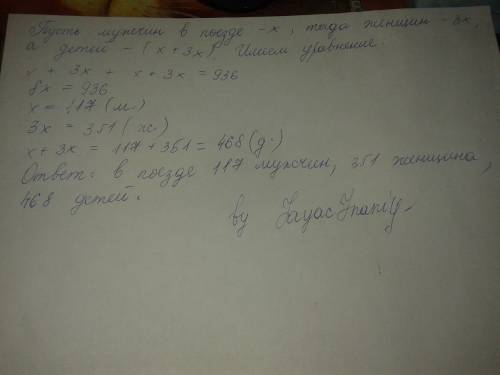 Пусть мужчин в поезде - x, тогда женщин - 3x,
а детей - (x + 3x). Имеем уравнение.
x + 3x + x + 3x = 936
8x = 936
x = 117 (м.)
3x = 351 (ж.)
x + 3x = 117 + 351 = 468 (д.)
Ответ: в поезде 117 мужчин, 351 женщина,
468 детей.
by